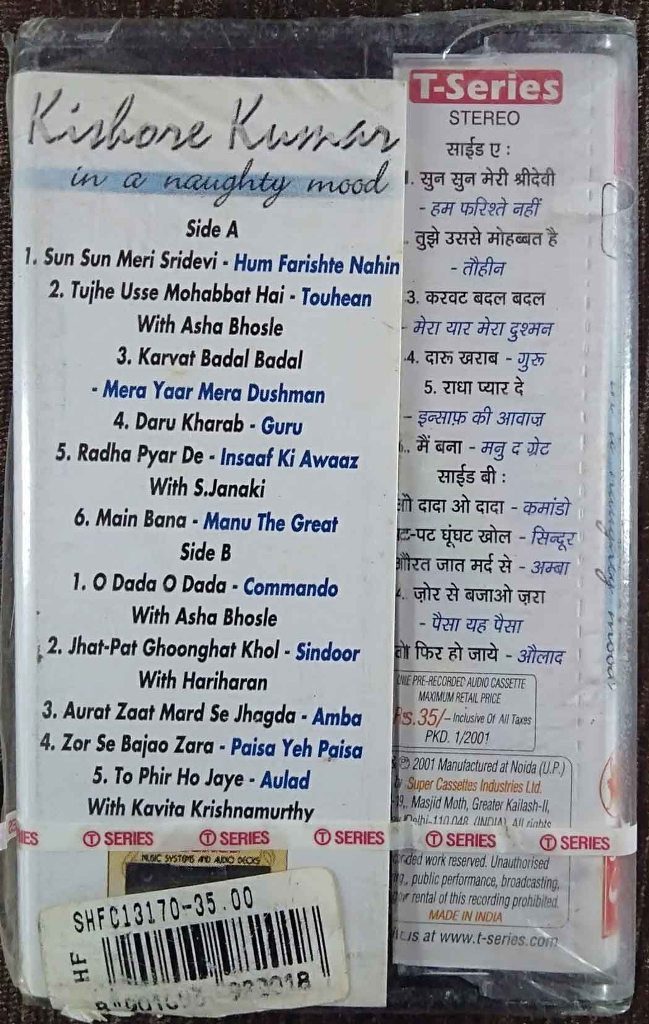 Kishore Kumar
in a naughty mood
Side A
1. Sun Sun Meri Sridevi - Hum Farishte Nahin
2. Tujhe Usse Mohabbat Hai - Touhean
With Asha Bhosle
3. Karvat Badal Badal
- Mera Yaar Mera Dushman
4. Daru Kharab - Guru
5. Radha Pyar De - Insaaf Ki Awaaz
With S.Janaki
6. Main Bana - Manu The Great
Side B
1. O Dada O Dada - Commando
With Asha Bhosle
2. Jhat-Pat Ghoonghat Khol - Sindoor
With Hariharan
3. Aurat Zaat Mard Se Jhagda - Amba
4. Zor Se Bajao Zara - Paisa Yeh Paisa
5. To Phir Ho Jaye - Aulad
With Kavita Krishnamurthy
T-Series
STEREO
साईड ए :
1. सुन सुन मेरी श्रीदेवी
- हम फरिश्ते नहीं
. तुझे उससे मोहब्बत है
- तौहीन
3. करवट बदल बदल
- मेरा यार मेरा दुश्मन
4. दारू खराब - गुरू
5. राधा प्यार दे
- इन्साफ़ की आवाज़
. मैं बना - मनु द ग्रेट
साईड बी :
दादा ओ दादा - कमांडो
-पट घूंघट खोल - सिन्दूर
औरत जात मर्द से - अम्बा
. ज़ोर से बजाओ ज़रा
- पैसा यह पैसा
फिर हो जाये - औलाद
PRE-RECORDED AUDIO CASSETTE
MAXIMUM RETAIL PRICE
Rs.35/- Inclusive Of All Taxes
PKD. 1/2001
℗ 2001 Manufactured at Noida (U.P.)
Super Cassettes Industries Ltd.
Masjid Moth, Greater Kailash-II,
Delhi-110 048, (INDIA). All rights
T SERIES T SERIES T SERIES T SERIES T SERIES
work reserved. Unauthorised
public performance, broadcasting,
or rental of this recording prohibited.
MADE IN INDIA
us at www.t-series.com
MUSIC SYSTEMS AND AUDIO DECKS
SHFC13170-35.00
HF